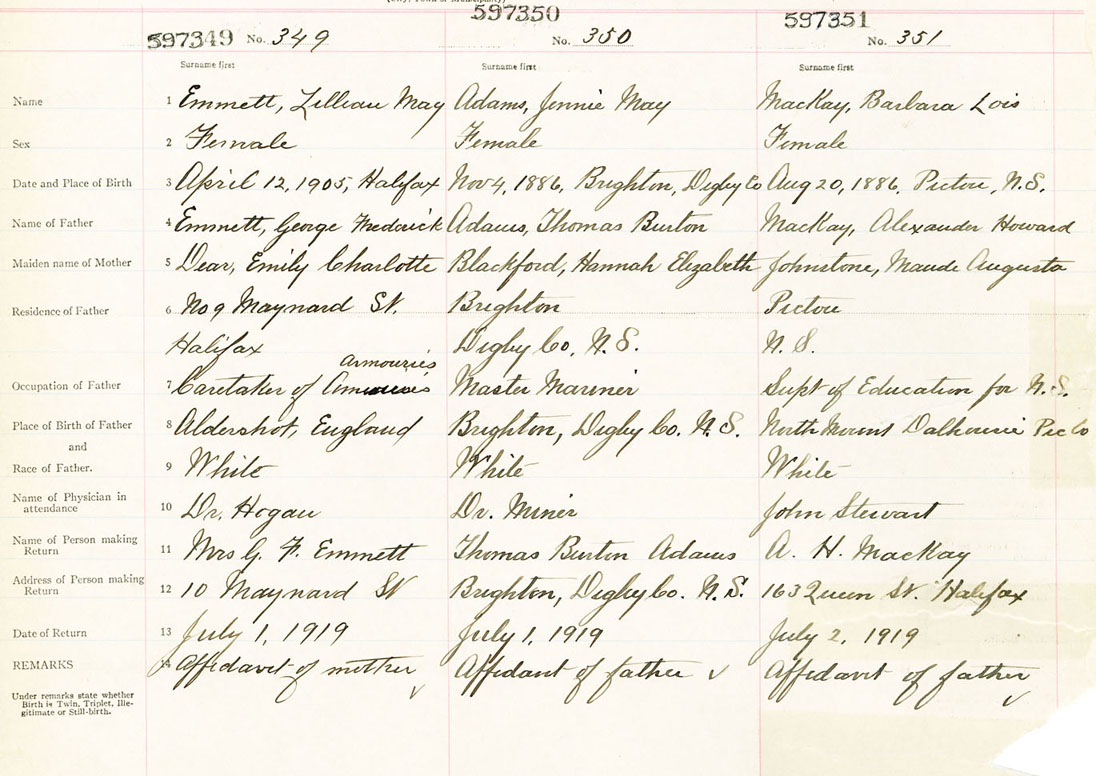 597349 No. 349 597350 No. 350 597351 No. 351
Surname first Surname first Surname first
Name 1 Emmett, Lillian May Adams, Jennie May MacKay, Barbara Lois
Sex 2 Female Female Female
Date and Place of Birth 3 April 12, 1905, Halifax Nov 4, 1886, Brighton, Digby Co Aug 20, 1886, Pictou, N.S.
Name of Father 4 Emmett, George Frederick Adams, Thomas Burton MacKay, Alexander Howard
Maiden name of Mother 5 Dear, Emily Charlotte Blackford, Hannah Elizabeth Johnstone, Maude Augusta
Residence of Father 6 No 9 Maynard St. Brighton Pictou
Halifax Digby Co, N.S. N.S.
armouries
Occupation of Father 7 Caretaker of Master Mariner Supt of Education for N.S.
Place of Birth of Father 8 Aldershot, England Brighton, Digby Co. N.S. North Mount Dalhousie Pic Co
and
Race of Father. 9 White White White
Name of Physician in attendance 10 Dr. Hogan Dr. Miner John Stewart
Name of Person making Return 11 Mrs G. F. Emmett Thomas Burton Adams A. H. MacKay
Address of Person making Return 12 10 Maynard St Brighton, Digby Co. N.S. 163 Queen St. Halifax
Date of Return 13 July 1, 1919 July 1, 1919 July 2, 1919
REMARKS 14 Affidavit of mother Affidavit of father Affidavit of father
Under remarks state whether
Birth is Twin, Triplet, Ille-
gitimate or Still-birth.